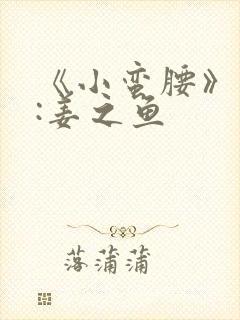 《小蛮腰》
:姜之鱼
落蒲蒲